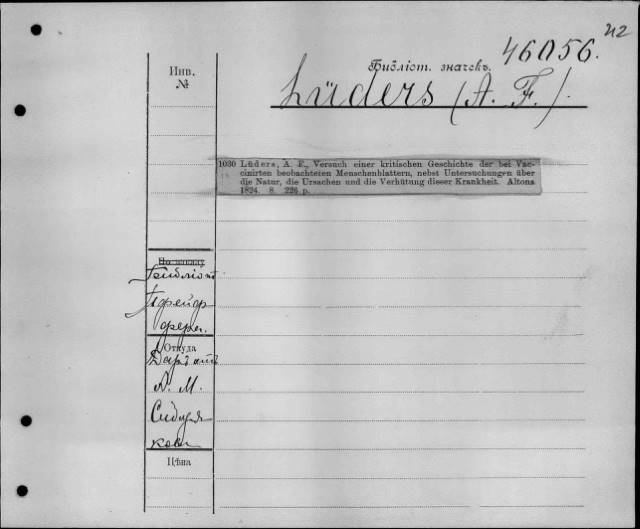 212
46056.
Библіот. значекъ.
Инв.
№
Lüders (A. F.).
1030 Lüders, A. F., Versuch einer kritischen Geschichte der bei Vac-
cinirten beobachteten Menschenblattern, nebst Untersuchungen über
die Natur, die Ursachen und die Verhütung dieser Krankheit. Altona
1824. 8. 226 p.
Библіот.
Пфейф
фера.
Откуда
Даръ отъ
А. М.
Сидоря
кова
Цѣна